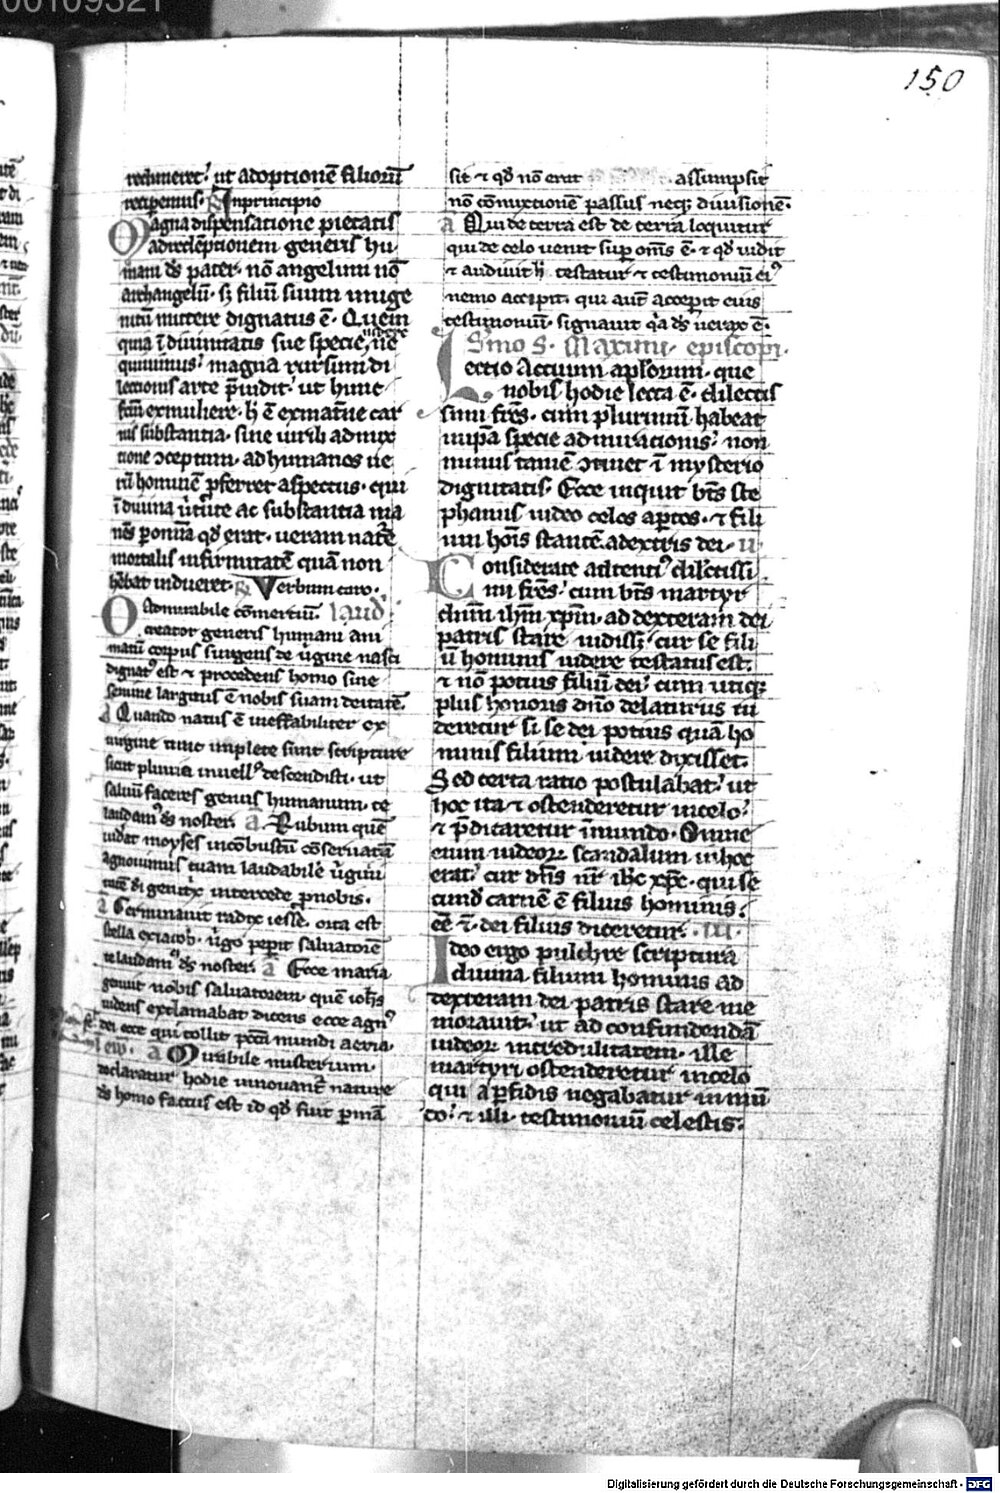 150
redimeret. ut adoptionē filiorū
recipemus. Inprincipio
Magna dispensatione pietatis
adredēptionem generis hu
mani ds pater. nō angelum nō
archangelū. sʒ filiū suum unige
nitū mittere dignatus ē. Quem
quia ī diuinitatis sue specie uidere nē
quiuimus. magna rursum di
lectionis arte p̄uidit. ut hunc
ex muliere. h̄ ē ex mat̄ne car
nis substantia. sine uirili admix
tione ɔceptum. ad humanos ue
rū hominē p̄ferret aspectus. qui
ī diuina ūtute ac substantia ma
nēs ꝑ omnia qd̄ erat. ueram nat̄e
mortalis infirmitatē quā non
hēbat indueret. Verbum caro.
O admirabile cōmertiū. laud.
creator generis humani ani
matū corpus sumens de ūgine nasci
dignatꝰ est ⁊ procedens homo sine
semine largitus ē nobis suam deitatē.
a Quando natus ē ineffabiliter ex
uirgine tunc implete sunt scripture
sicut pluuia in uellꝰ descendisti. ut
saluū faceres genus humanum. te
laudamꝰ ds noster. a Rubum quē
uiderat moyses incōbustū cōseruatā
agnouimus tuam laudabilē ūgini
tatē di genitx̄ intercede ꝓ nobis.
a Germinauit radix iesse. orta est
stella ex iacob. ūgo peꝑit saluatorē
te laudamꝰ ds noster. a Ecce maria
genuit nobis saluatorem. quē ioh̄s
uidens exclamabat dicens ecce agnꝰ
dei ecce qui tollit pctā mundi aeuia.
a Mirabile misterium.
declaratur hodie innouant̄ nature
ds homo factus est id qd̄ fuit ꝑmā
sit ⁊ qd̄ nō erat assumpsit
nō cōmixtionē passus neqʒ diuisionē.
a Qui de terra est de terra loquitur
qui de celo uenit suꝑ om̄s ē. ⁊ qd̄ uidit
⁊ audiuit h̄ testatur ⁊ testimoniū eiꝰ
nemo accipit. qui aut̄ acceperit eius
testimoniū. signauit q̄a ds uerax ē.
Smo S. Maximi. episcopi.
Lectio Actuum aplorum. que
nobis hodie lecta ē. dilectis
simi fr̄es. cum plurimū habeat
in ipa specie admirationis. non
minus tamē ɔtinet ī mysterio
dignitatis. Ecce inquit bt̄s ste
phanus uideo celos aꝑtos. ⁊ fili
um hōis stantē adextris dei. II
Considerate adtentiꝰ dilectissi
mi fr̄es. cum bt̄s martyr
dnm ihm xp̄m. ad dexteram dei
patris stare uidissʒ. cur se fili
ū hominis uidere testatus est.
⁊ nō potius filiū dei. cum utiqʒ
plus honoris dn̄o delaturus ui
deretur si se dei potius quā ho
minis filium uidere dixisset.
Sed certa ratio postulabat. ut
hoc ita ⁊ ostenderetur in celo.
⁊ p̄dicaretur ī mundo. Omne
enim iudeoꝝ scandalum in hoc
erat. cur dn̄s nr̄ ihc xpc. qui se
cund̄ carnē ē filius hominis.
eē ⁊ dei filius diceretur. III.
Ideo ergo pulchre scriptura
diuina filium hominis ad
dexteram dei patris stare me
morauit. ut ad confundendā
iudeoꝝ incredulitatem. ille
martyri ostenderetur in celo
qui a ꝑfidis negabatur in mū
do. ⁊ illi testimoniū celestis.
Digitalisierung gefördert durch die Deutsche Forschungsgemeinschaft - DFG